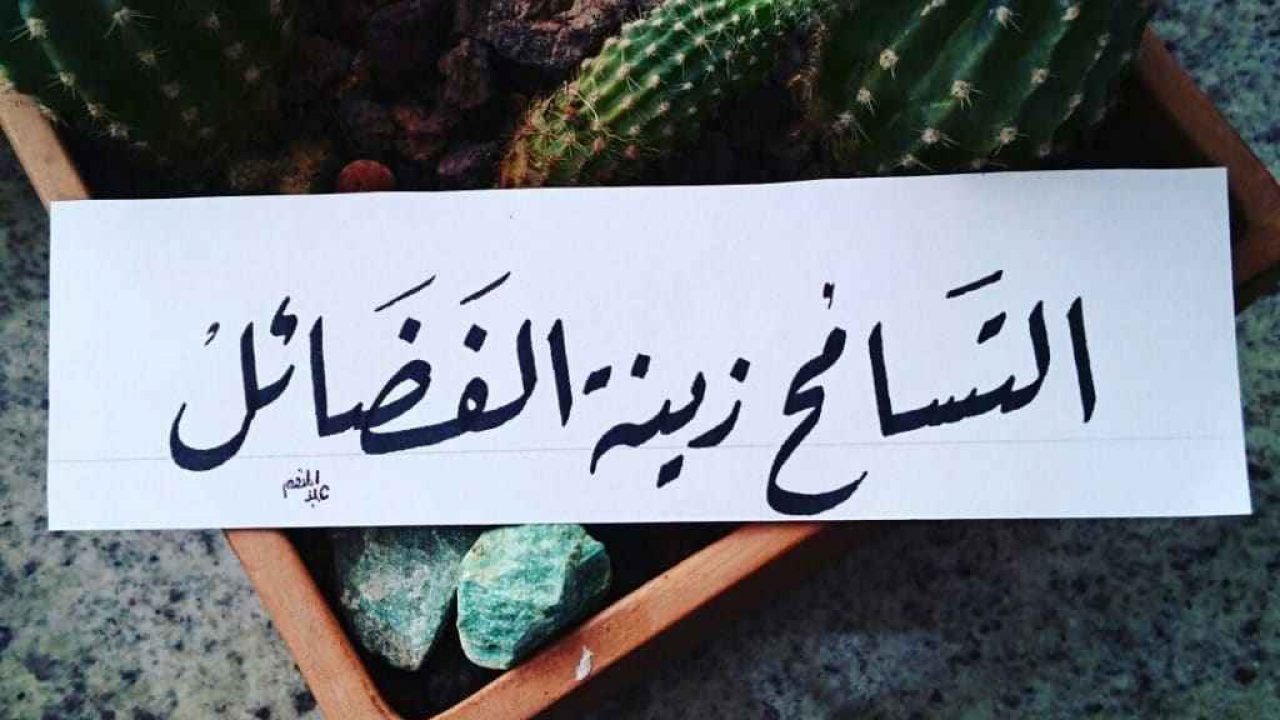 التَسامحُ زينة الفَضَائلْ
عبد المنعم